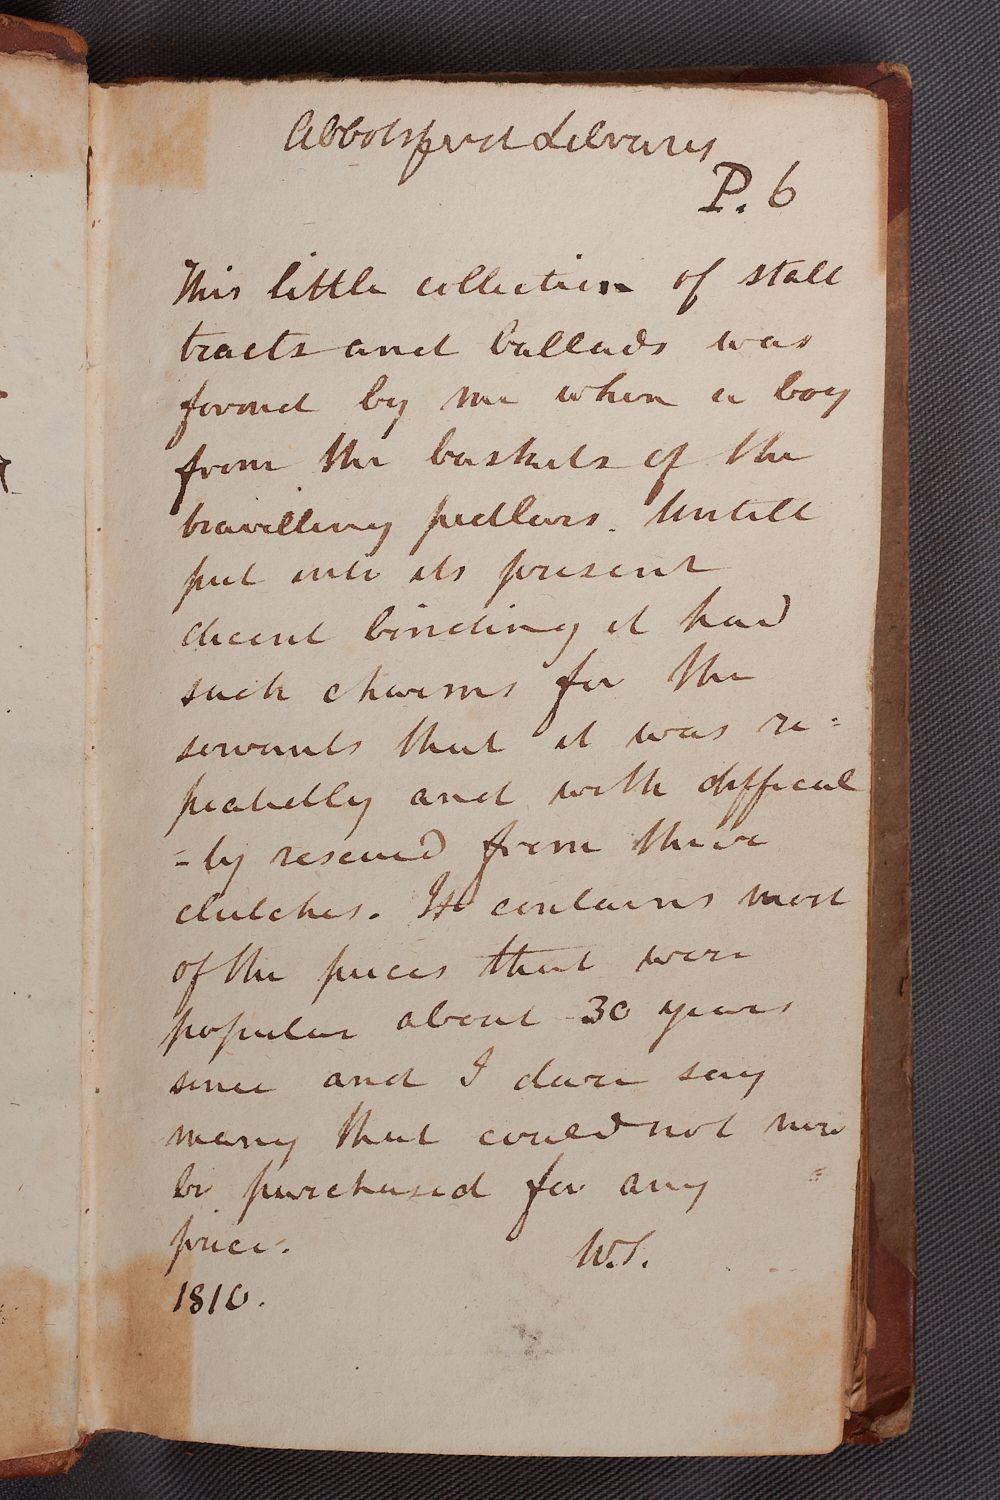 Abbotsford Library
P. 6
This little collection of stall
tracts and ballads was
formd by me when a boy
from the baskets of the
travelling pedlars. Untill
put into its present
decent binding it had
such charms for the
servants that it was re=
peatedly and with difficul
=ty rescued from their
clutches. It contains most
of the pieces that were
popular about 30 years
since and I dare say
many that could not now
be purchased for any
price.
W.S.
1810.